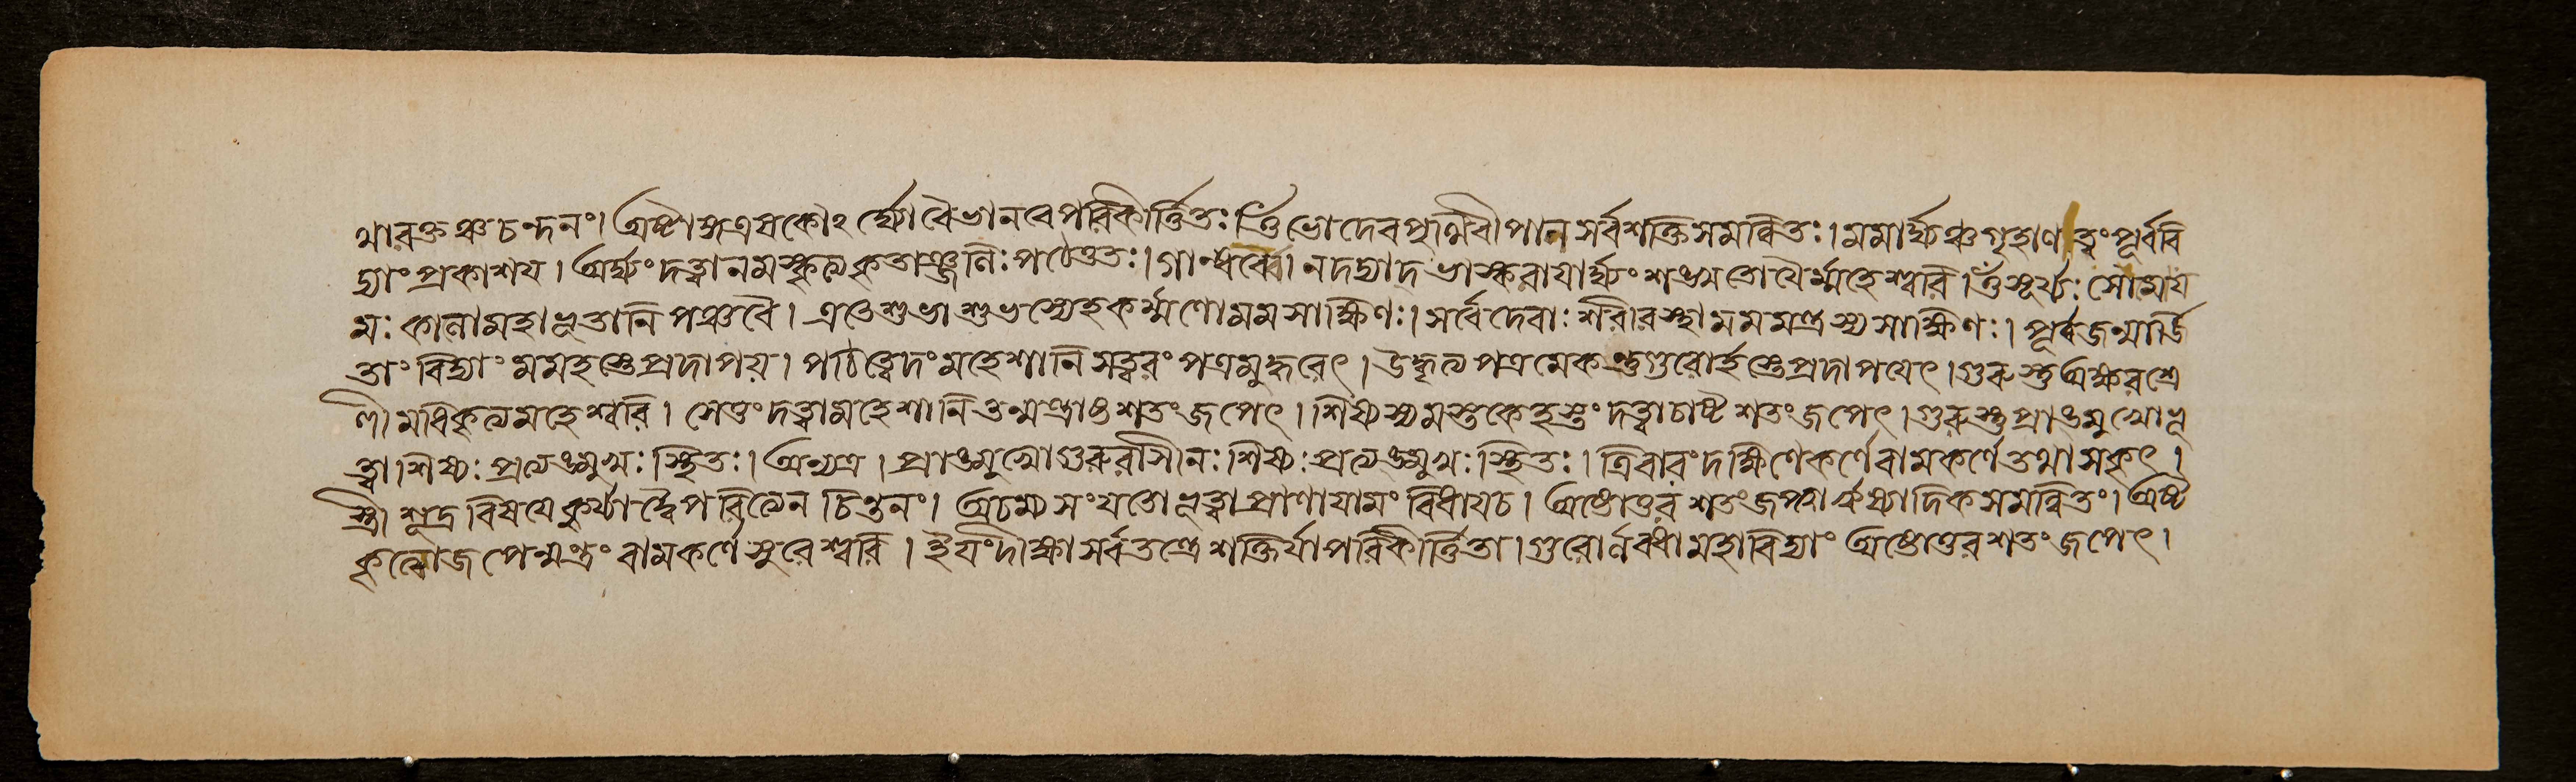 থারক্তঞ্চচন্দনং। অষ্টাঙ্গএষকোঽর্ঘ্যোবৈভানবেপরিকীর্ত্তিতঃ ওঁভোদেবপৃথিবীপালসর্বশক্তিসমন্বিতঃ। মমার্ঘ্যঞ্চগৃহাণত্বংপূর্ববি
দ্যাংপ্রকাশয। অর্ঘ্যংদত্ত্বানমস্কৃত্যকৃতাঞ্জলিঃপঠেত্ততঃ। ভাস্করাযার্ঘ্যং মহেশ্বরি। ওঁসূর্য্যঃসোমোয
মঃকালোমহাভূতানিপঞ্চবৈ। এতেশুভাশুভস্যেহকর্ম্মণোমমসাক্ষিণঃ। সর্বেদেবাঃশরীরস্থামমমন্ত্রস্যসাক্ষিণঃ। পূর্বজন্মার্জি
তাংবিদ্যাংমমহস্তেপ্রদাপয়। পঠিত্বেদংমহেশানিসত্বরংপত্রমুদ্ধরেৎ। উদ্ধৃত্যপত্রমেকন্তুগুরোর্হস্তেপ্রদাপযেৎ। গুরুস্তুঅক্ষরশ্রে
ণীমধিকৃত্যমহেশ্বরি। সেতুংদত্ত্বামহেশানিতন্মন্ত্রাষ্টশতংজপেৎ। শিষ্যস্যমস্তকেহস্তংদত্ত্বাচাষ্টশতংজপেৎ। গুরুস্তুপ্রাঙমুখোভূ
ত্বাশিষ্যঃপ্রত্যঙমুখঃস্থিতঃ। অন্যত্র। প্রাঙমুখোগুরুরাসীনঃশিষ্যঃপ্রত্যঙমুখঃস্থিতঃ। ত্রিবারংদক্ষিণেকর্ণেবামকর্ণেতথাসকৃৎ।
স্ত্রীশূদ্রবিষযেকুর্য্যাদ্বৈপরীত্যেনচিন্তনং। অচম্যসংযতোভূত্বাপ্রাণাযামংবিধাযচ। অষ্টোত্তরশতংজপ্ত্বাঋষ্যাদিকসমন্বিতং। অষ্ট
কৃত্বোজপেন্মন্ত্রংবামকর্ণেসুরেশ্বরি। ইযংদীক্ষাসর্বতন্ত্রেশক্তির্যাপরিকীর্ত্তিতা। গুরোর্লব্ধামহাবিদ্যাংঅষ্টোত্তরশতংজপেৎ।